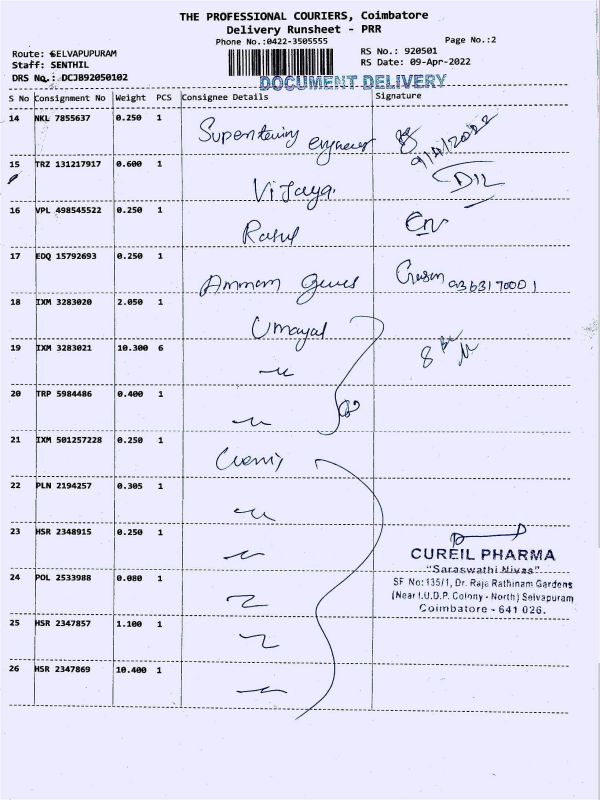 THE PROFESSIONAL COURIERS, Coimbatore
Delivery Runsheet - PRR
Phone No.:0422-3505555
Page No.:2
Route: SELVAPUPURAM
RS No.: 920501
Staff: SENTHIL
RS Date: 09-Apr-2022
DRS No.: DCJB92050102
DOCUMENT DELIVERY
S No Consignment No Weight PCS Consignee Details Signature
14 NKL 7855637 0.250 1
9/4/2022
15 TRZ 131217917 0.600 1 Vijaya.
16 VPL 498545522 0.250 1 Rahul
17 EDQ 15792693 0.250 1
18 IXM 3283020 2.050 1 Umayal
19 IXM 3283021 10.300 6
20 TRP 5984486 0.400 1
21 IXM 501257228 0.250 1
22 PLN 2194257 0.305 1
23 HSR 2348915 0.250 1
CUREIL PHARMA
"Saraswathi Nivas"
24 POL 2533988 0.080 1
SF No: 135/1, Dr. Raja Rathinam Gardens
(Near I.U.D.P. Colony - North) Selvapuram
Coimbatore - 641 026.
25 HSR 2347857 1.100 1
26 HSR 2347869 10.400 1